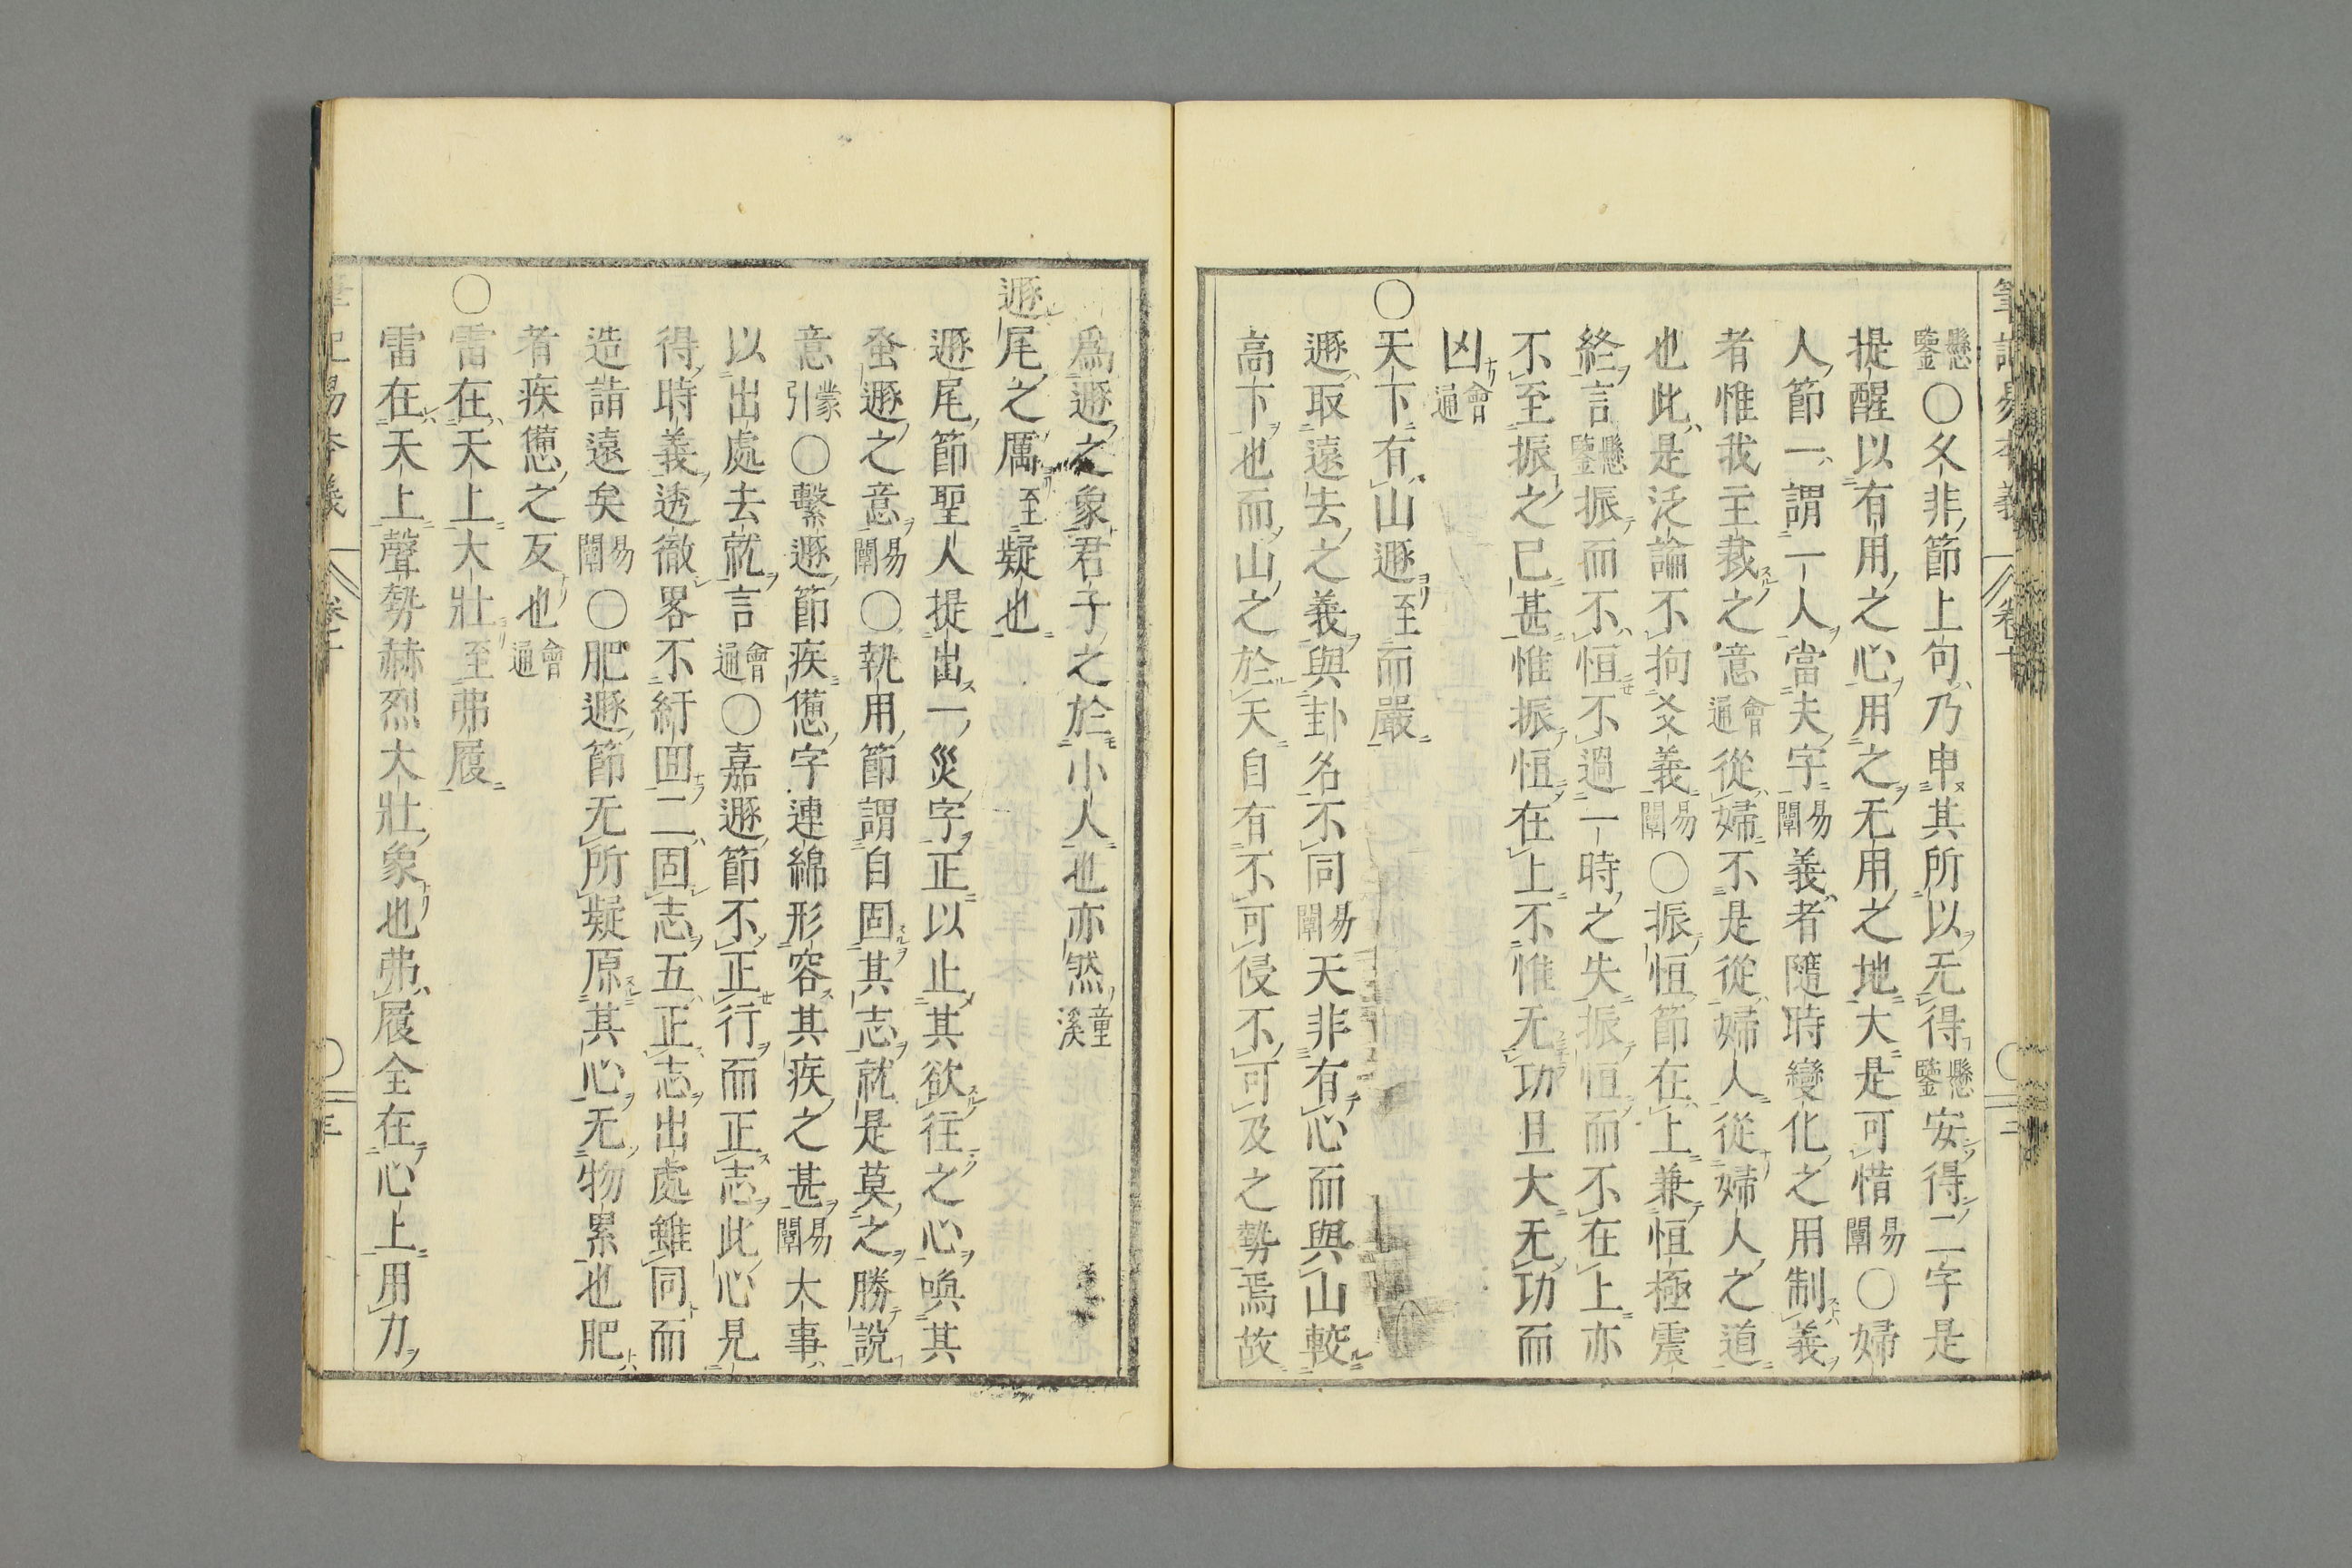 懸鑒〇久非節上句乃申其所以无得懸鑒安得二字是
提醒以有用之心用之无用之地大是可惜易闡〇婦
人節一謂一人當夫字易闡義者隨時變化之用制義
者惟我主裁之意會通從婦不是從婦人從婦人之道
也此是泛論不拘爻義易闡〇振恒節在上兼恒極震
終言懸鑒振而不恒不過一時之失振恒而不在上亦
不至振之已甚惟振恒在上不惟无功且大无功而
凶會通
〇天下有山遯至而嚴
遯取遠去之義與卦名不同易闡天非有心而與山較
高下也而山之於天自有不可侵不可及之勢焉故
爲遯之象君子之於小人也亦然童溪
遯尾之厲至疑也
遯尾節聖人提出一災字正以止其欲往之心喚其
蚤遯之意易闡〇執用節謂自固其志就是莫之勝說
意蒙引〇繫遯節疾憊字連綿形容其疾之甚易闡大事
以出處去就言會通〇嘉遯節不正行而正志此心見
得時義透徹畧不紆回二固志五正志出處雖同而
造詣遠矣易闡〇肥遯節无所疑原其心无物累也肥
者疾憊之反也會通
〇雷在天上大壯至弗履
雷在天上聲勢赫烈大壯象也弗履全在心上用力